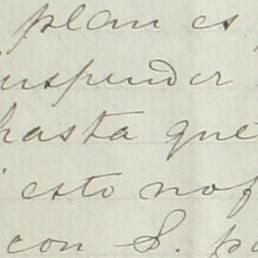 plan es
uspender
hasta que
esto no
con S. p